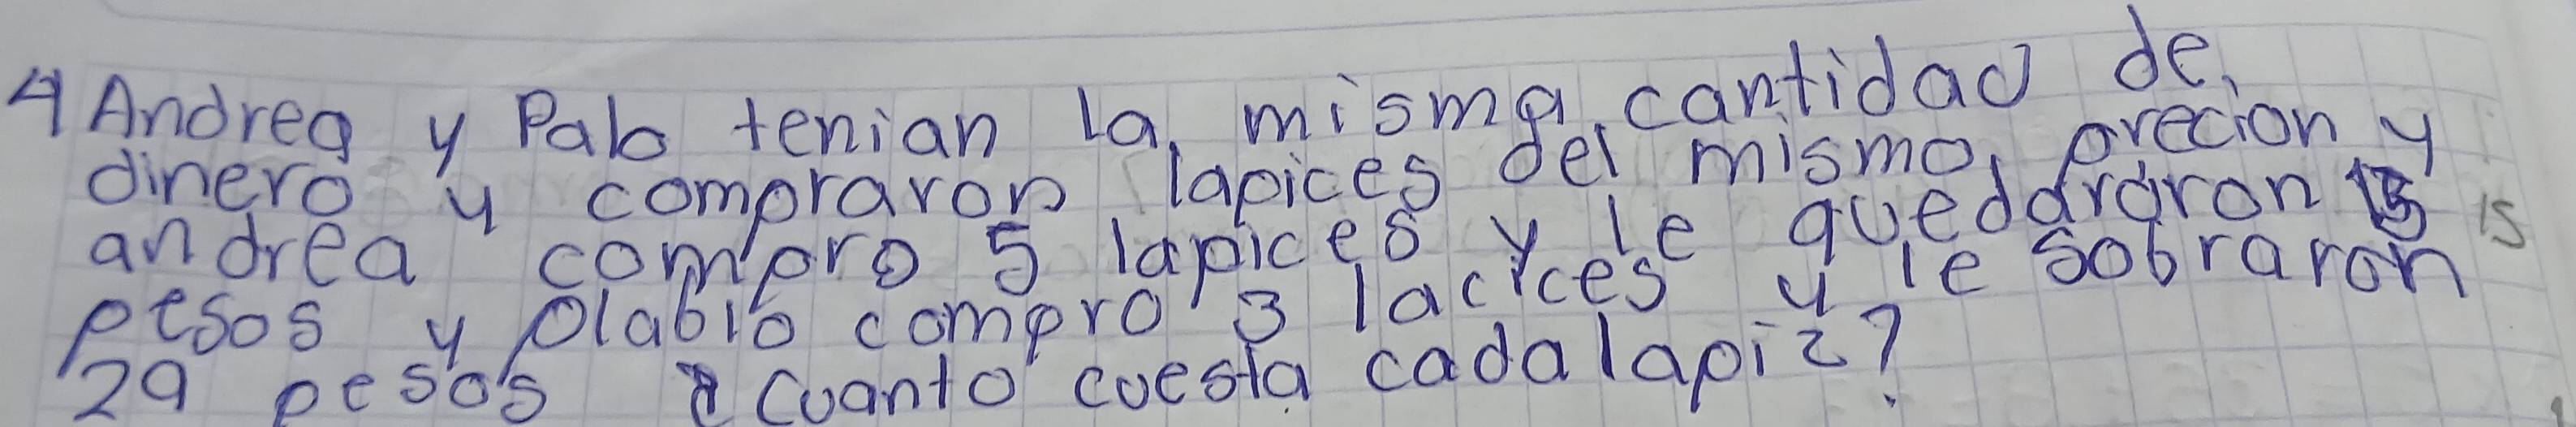 4 Andrea y Pablo tenian la misma cantidad de
dinero y compraron lapices del mismo precion y
andrea compro 5 lapices y le quedararon 15 15
pesos y plablo compro 3 lacices y le sobraron
29 pesos ¿Cuanto cuesta cada lapiz?